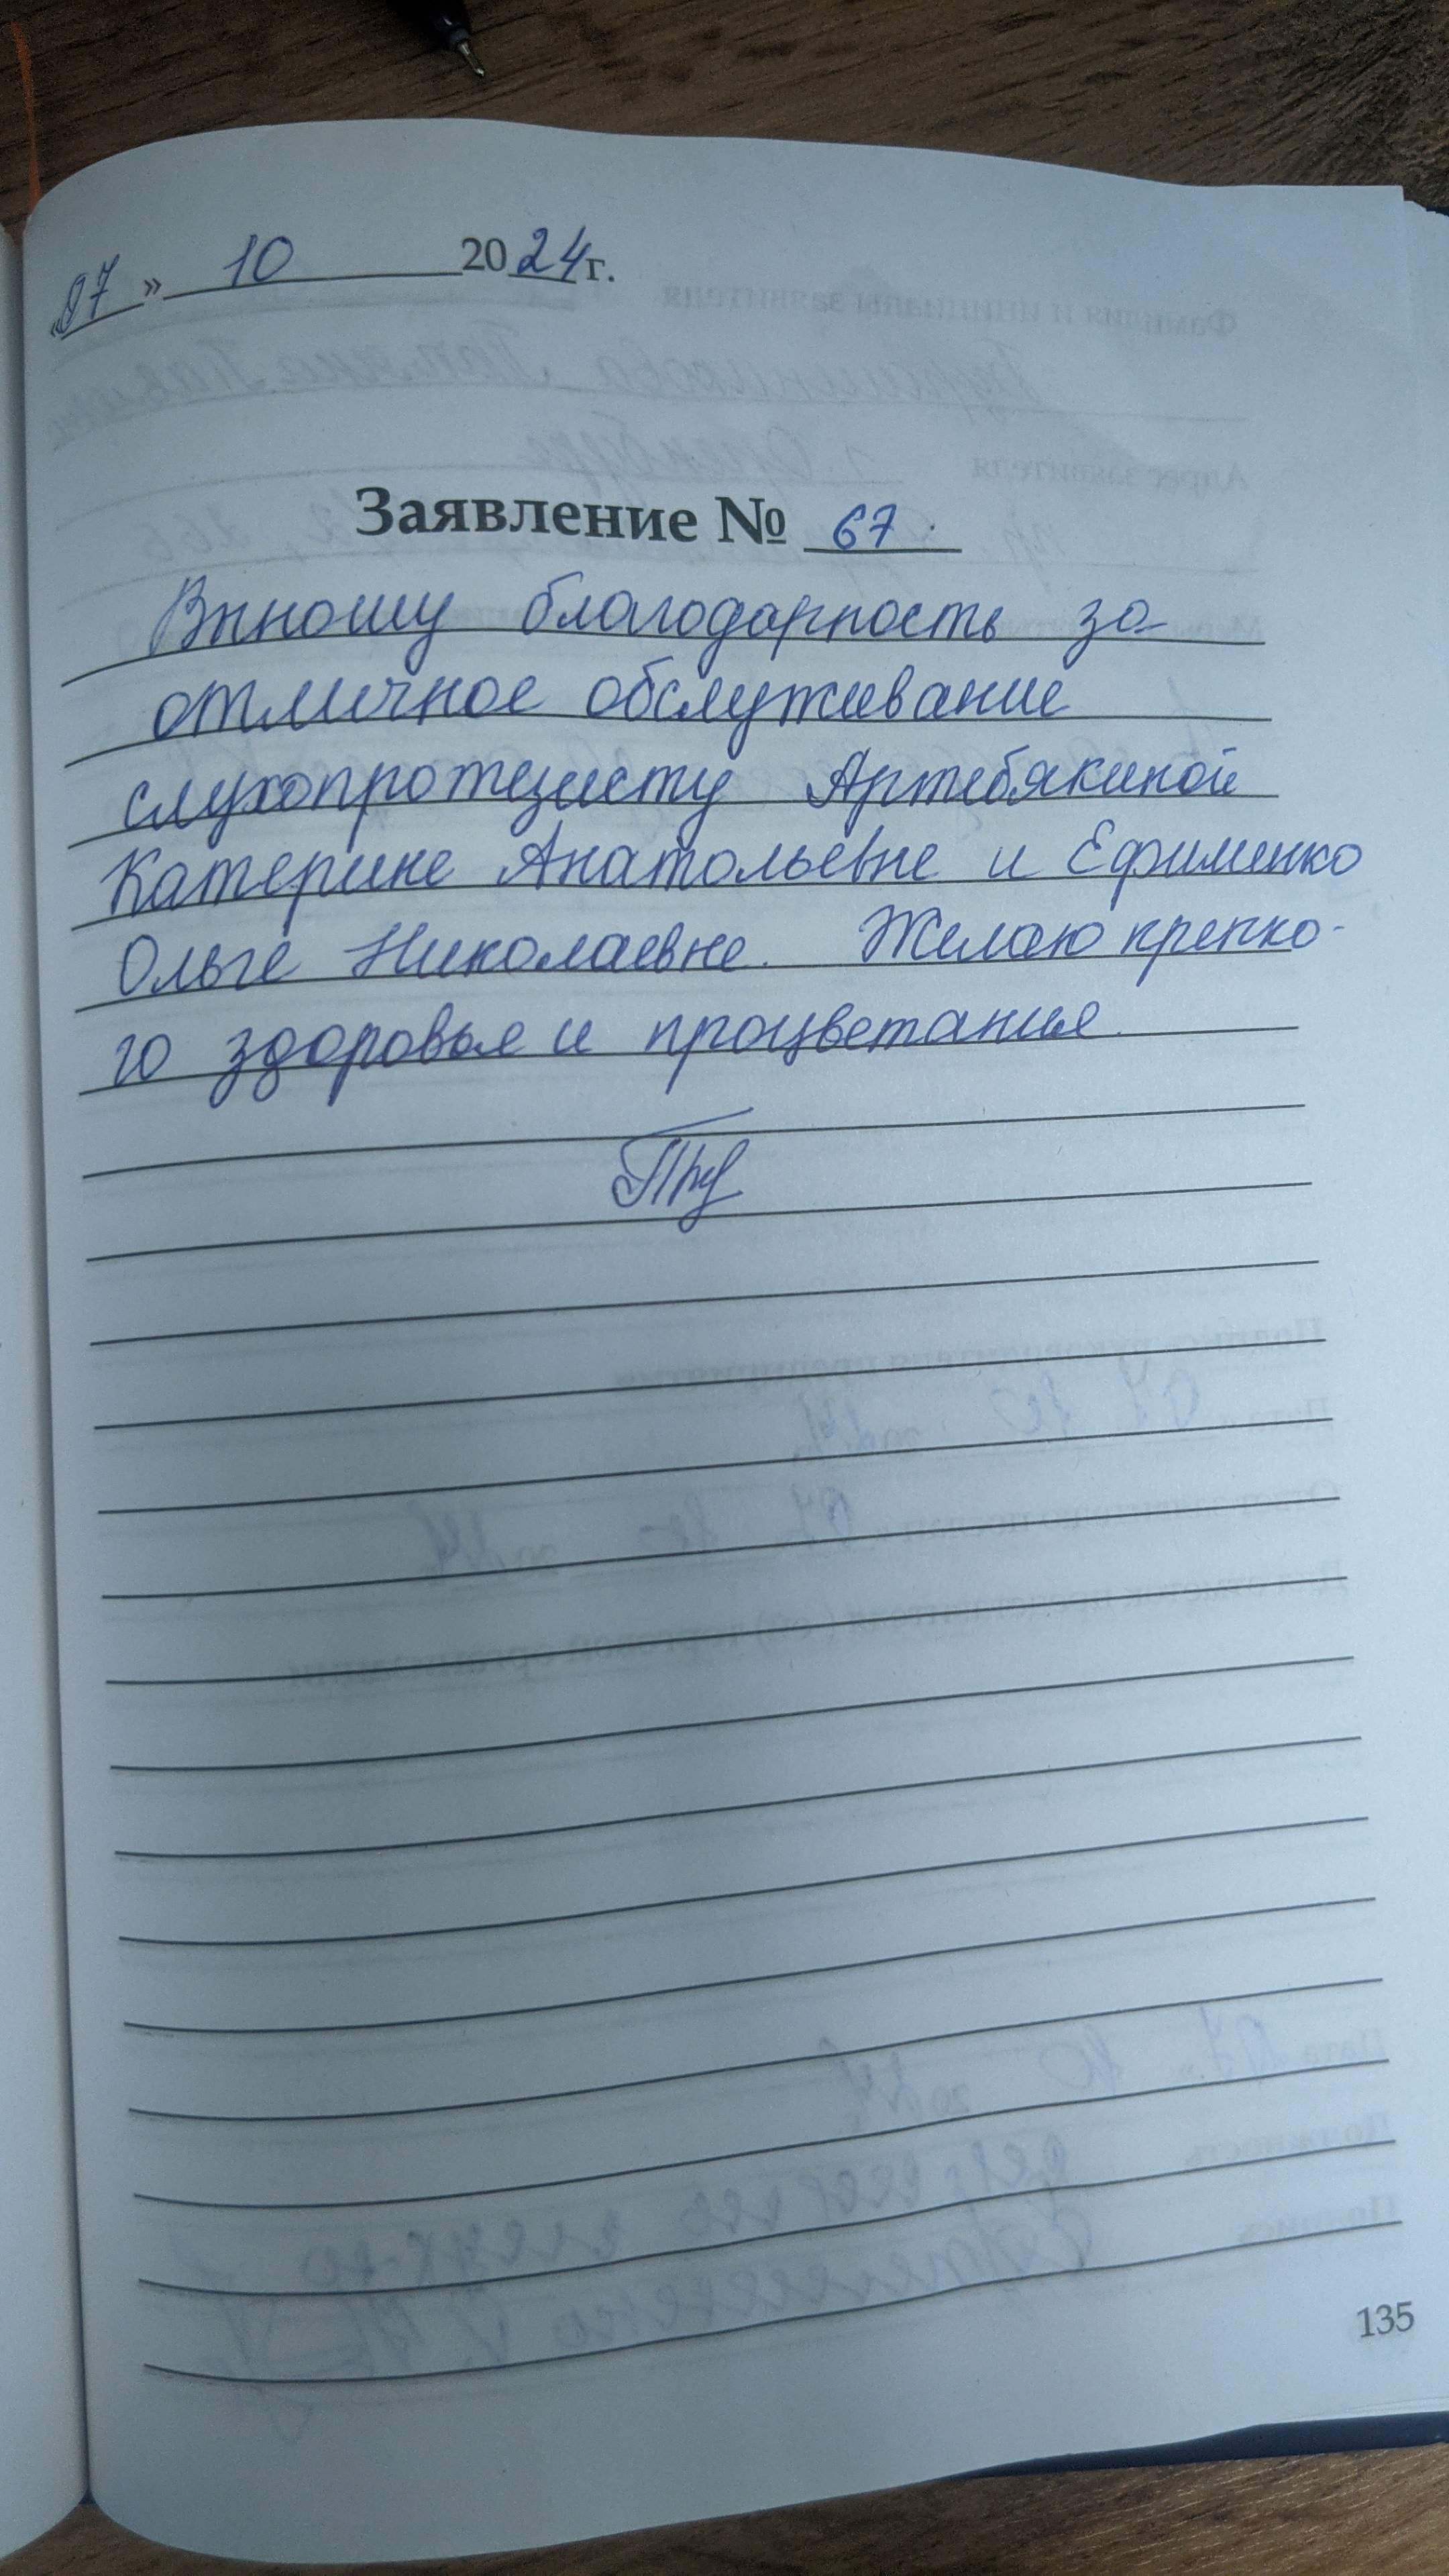 «07» 10 2024г.
Заявление № 67
Вынношу благодарность за
отличное обслуживание
слухопротезисту Артебякиной
Катерине Анатольевне и Ефименко
Ольге Николаевне. Желаю крепко-
го здоровья и процветания.
135